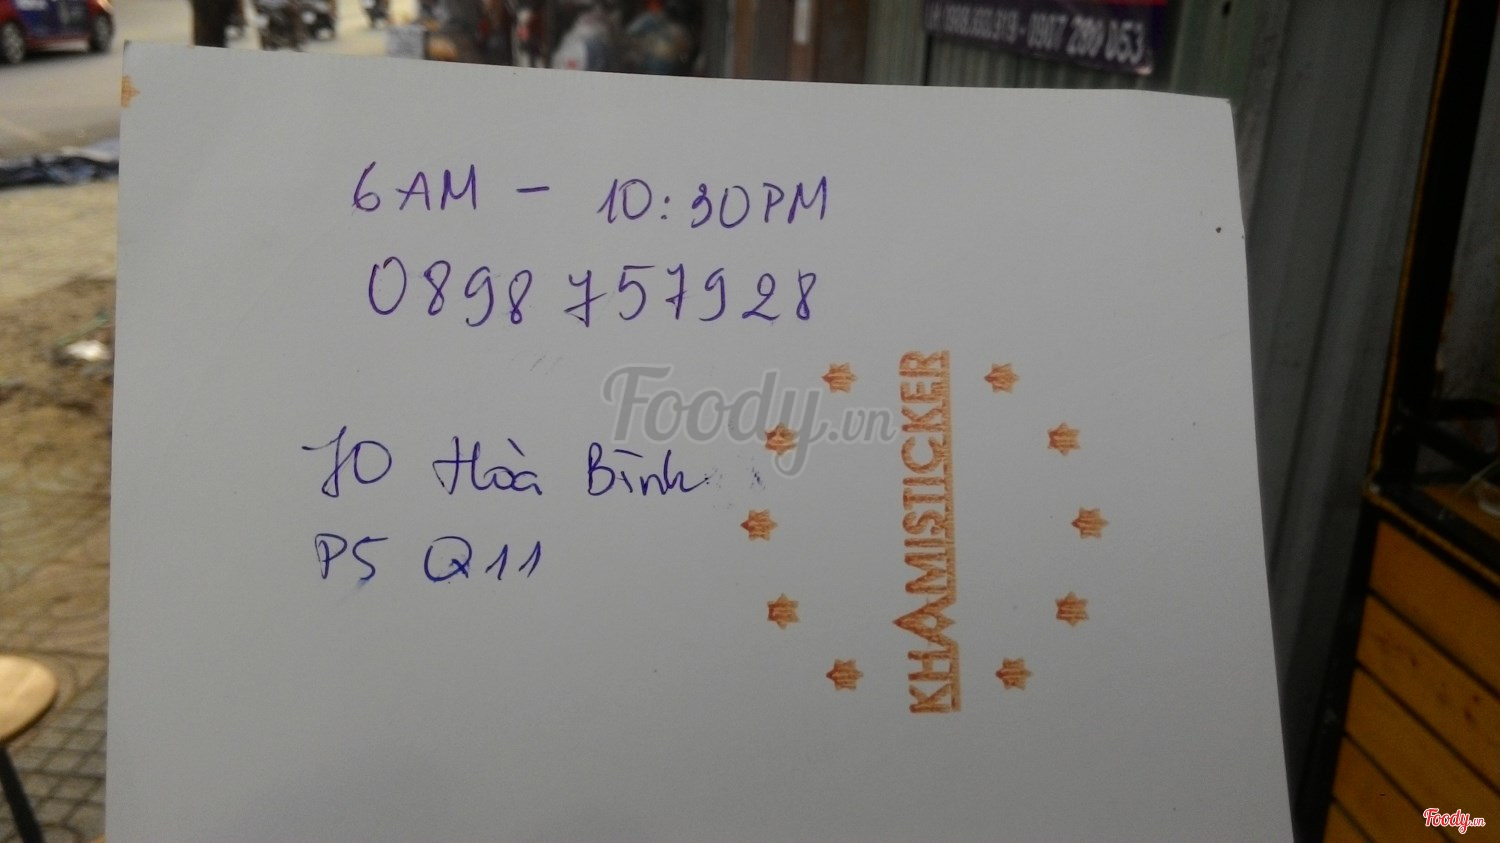 0907 200 053
6 AM - 10:30 PM
0898 757928
70 Hoà Bình
P5 Q11
KHAMISTICKER
Foody.vn
Foody.vn